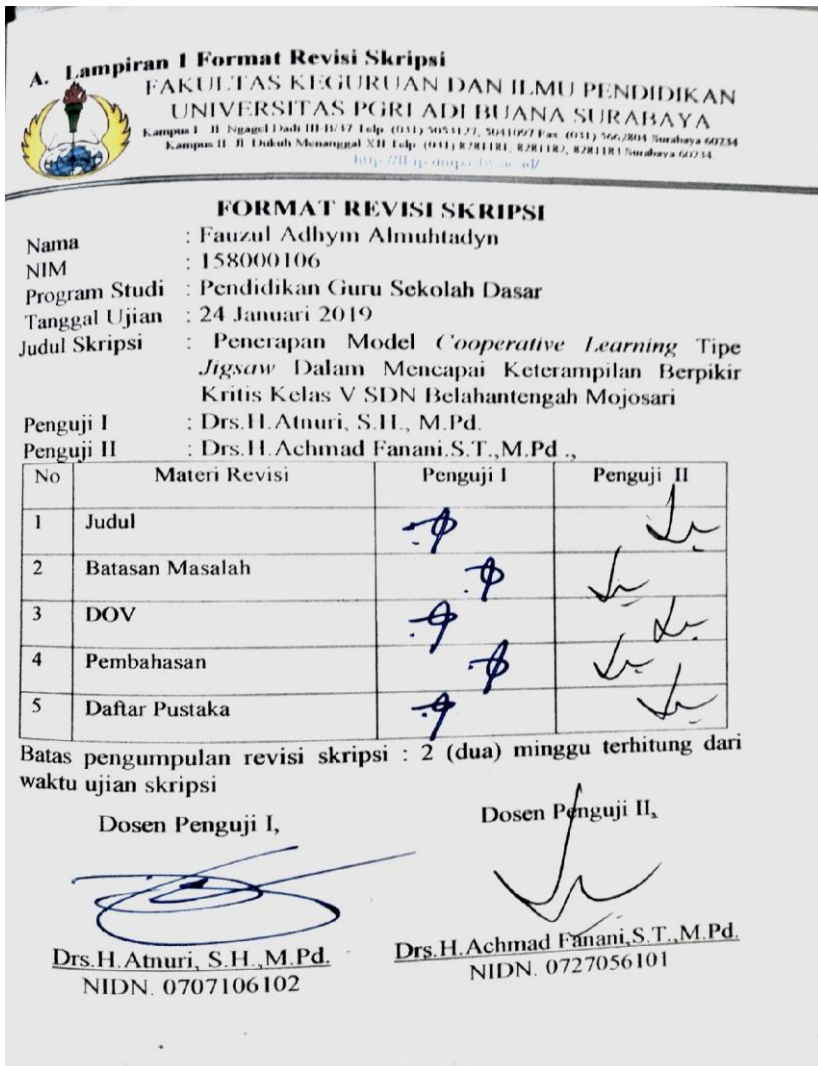 A. Lampiran 1 Format Revisi Skripsi
FAKULTAS KEGURUAN DAN ILMU PENDIDIKAN
UNIVERSITAS PGRI ADI BUANA SURABAYA
Kampus I Jl. Ngagel Dadi III-B/37 Telp. (031) 5053127, 5041097 Fax. (031) 5662804 Surabaya 60234
Kampus II. Jl. Dukuh Menanggal XII Telp. (031) 8281181, 8281182, 8281183 Surabaya 60234.
FORMAT REVISI SKRIPSI
Nama : Fauzul Adhym Almuhtadyn
NIM : 158000106
Program Studi : Pendidikan Guru Sekolah Dasar
Tanggal Ujian : 24 Januari 2019
Judul Skripsi : Penerapan Model Cooperative Learning Tipe
Jigsaw Dalam Mencapai Keterampilan Berpikir
Kritis Kelas V SDN Belahantengah Mojosari
Penguji I : Drs.H.Atnuri, S.H., M.Pd.
Penguji II : Drs.H.Achmad Fanani.S.T.,M.Pd .,
No Materi Revisi Penguji I Penguji II
1 Judul
2 Batasan Masalah
3 DOV
4 Pembahasan
5 Daftar Pustaka
Batas pengumpulan revisi skripsi : 2 (dua) minggu terhitung dari
waktu ujian skripsi
Dosen Penguji I, Dosen Penguji II,
Drs.H.Atnuri, S.H.,M.Pd. Drs.H.Achmad Fanani,S.T.,M.Pd.
NIDN. 0707106102 NIDN. 0727056101